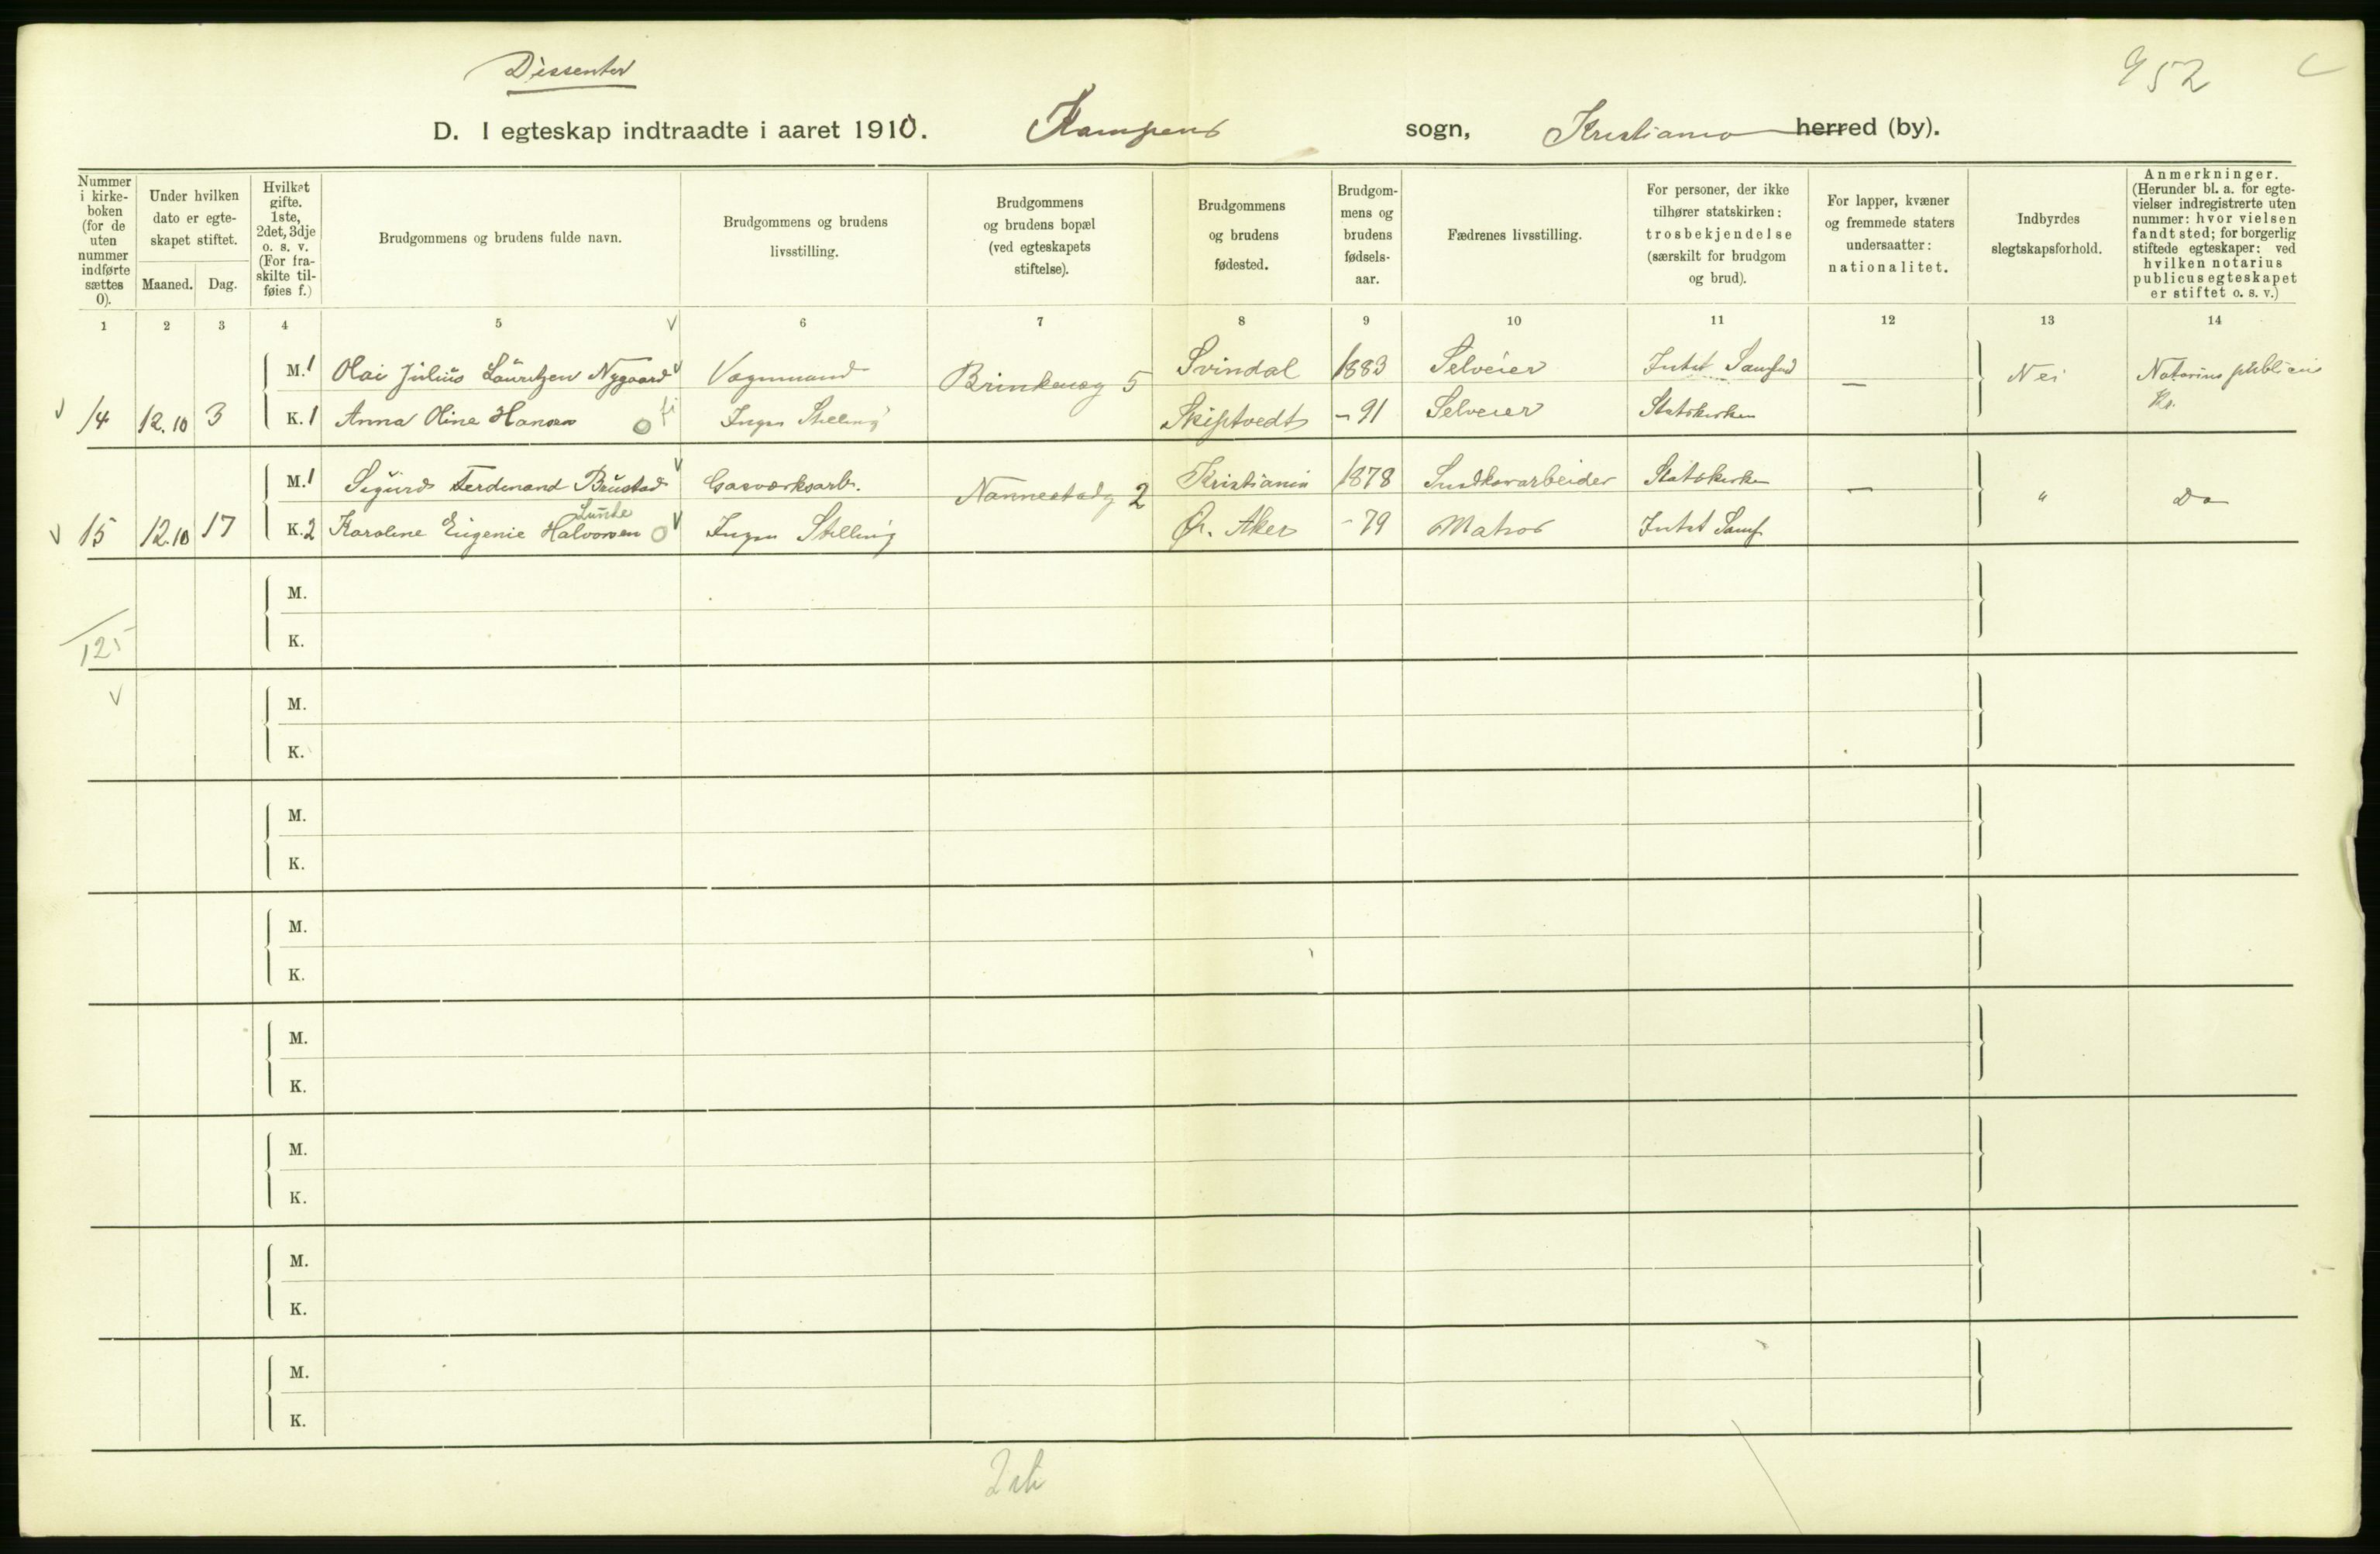 Dissenter
952
D. I egteskap indtraadte i aaret 1910. Kampens sogn, Kristiania herred (by).
Nummer i kirke-boken (for de uten nummer indførte sættes 0).
Under hvilken dato er egte-skapet stiftet.
Maaned. Dag.
Hvilket gifte. 1ste, 2det, 3dje o. s. v. (For fra-skilte til-føies f.)
Brudgommens og brudens fulde navn.
Brudgommens og brudens livsstilling.
Brudgommens og brudens bopæl (ved egteskapets stiftelse).
Brudgommens og brudens fødested.
Brudgom-mens og brudens fødsels-aar.
Fædrenes livsstilling.
For personer, der ikke tilhører statskirken: trosbekjendelse (særskilt for brudgom og brud).
For lapper, kvæner og fremmede staters undersaatter: nationalitet.
Indbyrdes slegtskapsforhold.
Anmerkninger. (Herunder bl. a. for egte-vielser indregistrerte uten nummer: hvor vielsen fandt sted; for borgerlig stiftede egteskaper: ved hvilken notarius publicus egteskapet er stiftet o. s. v.)
1 2 3 4 5 6 7 8 9 10 11 12 13 14
M. 1 Olai Julius Lauritzen Nygaard Vognmand Brinkenog 5 Svindal 1883 Selveier Intet Samfud — Nei Notarius publicus
14 12.10 3 K. 1 Anna Oline Hansen Ingen Stilling Skiptvedt - 91 Selveier Statskirken Kr.
M. 1 Sigurd Ferdinand Brustad Gasværksarb. Nannestadg 2 Kristiania 1878 Statskirken — " Do
Lunde
15 12.10 17 K. 2 Karoline Eugenie Halvorsen Ingen Stilling Ør. Aker - 79 Matros Intet Samf
M.
K.
125
M.
K.
M.
K.
M.
K.
M.
K.
M.
K.
M.
K.
M.
K.